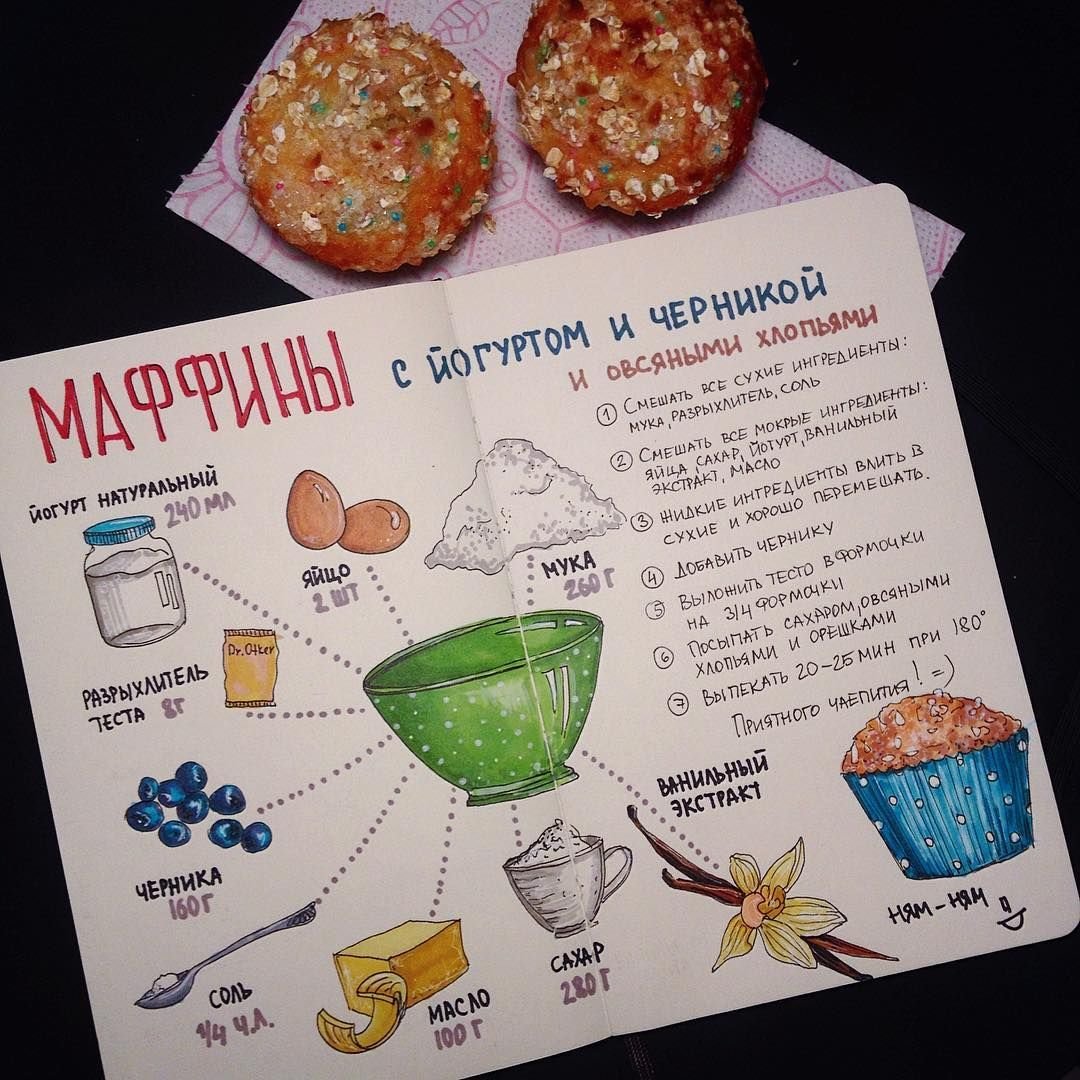 МАФФИНЫ
С ЙОГУРТОМ И ЧЕРНИКОЙ
И ОВСЯНЫМИ ХЛОПЬЯМИ
① СМЕШАТЬ ВСЕ СУХИЕ ИНГРЕДИЕНТЫ:
МУКА, РАЗРЫХЛИТЕЛЬ, СОЛЬ
② СМЕШАТЬ ВСЕ МОКРЫЕ ИНГРЕДИЕНТЫ:
ЯЙЦА, САХАР, ЙОГУРТ, ВАНИЛЬНЫЙ
ЭКСТРАКТ, МАСЛО
③ ЖИДКИЕ ИНГРЕДИЕНТЫ ВЛИТЬ В
СУХИЕ И ХОРОШО ПЕРЕМЕШАТЬ.
④ ДОБАВИТЬ ЧЕРНИКУ
⑤ ВЫЛОЖИТЬ ТЕСТО В ФОРМОЧКИ
НА 3/4 ФОРМОЧКИ
⑥ ПОСЫПАТЬ САХАРОМ, ОВСЯНЫМИ
ХЛОПЬЯМИ И ОРЕШКАМИ
⑦ ВЫПЕКАТЬ 20-25 МИН ПРИ 180°
ПРИЯТНОГО ЧАЕПИТИЯ! =)
ЙОГУРТ НАТУРАЛЬНЫЙ
240 МЛ
ЯЙЦО
2 ШТ
МУКА
260 Г
Dr. Otker
РАЗРЫХЛИТЕЛЬ
ТЕСТА 8Г
ЧЕРНИКА
160 Г
СОЛЬ
1/4 Ч.Л.
МАСЛО
100 Г
САХАР
280 Г
ВАНИЛЬНЫЙ
ЭКСТРАКТ
НЯМ-НЯМ